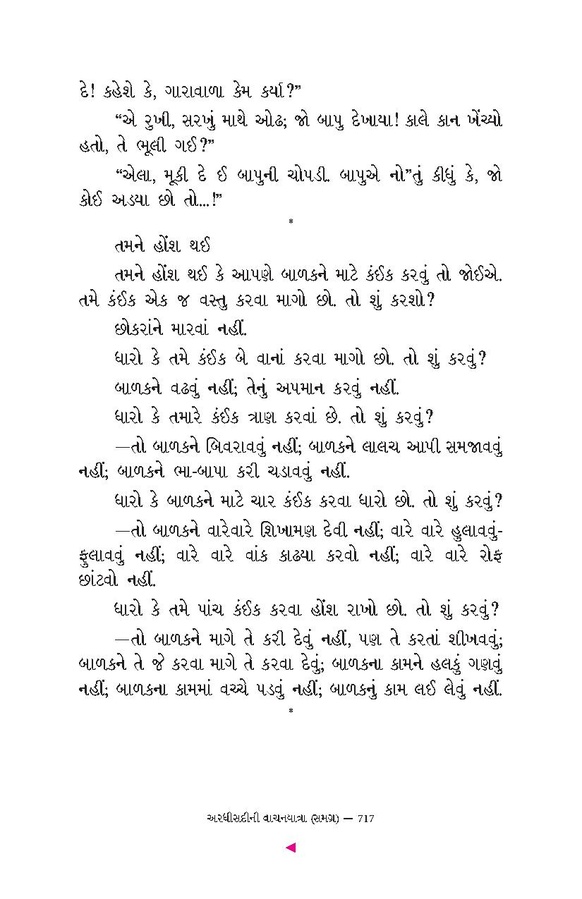 દે! કહેશે કે, ગારાવાળા કેમ કર્યા?”
“એ રુખી, સરખું માથે ઓઢ; જો બાપુ દેખાયા! કાલે કાન ખેંચ્યો
હતો, તે ભૂલી ગઈ?”
“એલા, મૂકી દે ઈ બાપુની ચોપડી. બાપુએ નો”તું કીધું કે, જો
કોઈ અડયા છો તો...!”
*
તમને હોંશ થઈ
તમને હોંશ થઈ કે આપણે બાળકને માટે કંઈક કરવું તો જોઈએ.
તમે કંઈક એક જ વસ્તુ કરવા માગો છો. તો શું કરશો?
છોકરાંને મારવાં નહીં.
ધારો કે તમે કંઈક બે વાનાં કરવા માગો છો. તો શું કરવું?
બાળકને વઢવું નહીં; તેનું અપમાન કરવું નહીં.
ધારો કે તમારે કંઈક ત્રણ કરવાં છે. તો શું કરવું?
—તો બાળકને બિવરાવવું નહીં; બાળકને લાલચ આપી સમજાવવું
નહીં; બાળકને ભા-બાપા કરી ચડાવવું નહીં.
ધારો કે બાળકને માટે ચાર કંઈક કરવા ધારો છો. તો શું કરવું?
—તો બાળકને વારેવારે શિખામણ દેવી નહીં; વારે વારે હુલાવવું-
ફુલાવવું નહીં; વારે વારે વાંક કાઢયા કરવો નહીં; વારે વારે રોફ
છાંટવો નહીં.
ધારો કે તમે પાંચ કંઈક કરવા હોંશ રાખો છો. તો શું કરવું?
—તો બાળકને માગે તે કરી દેવું નહીં, પણ તે કરતાં શીખવવું;
બાળકને તે જે કરવા માગે તે કરવા દેવું; બાળકના કામને હલકું ગણવું
નહીં; બાળકના કામમાં વચ્ચે પડવું નહીં; બાળકનું કામ લઈ લેવું નહીં.
*
અરધીસદીની વાચનયાત્રા (સમગ્ર) — 717